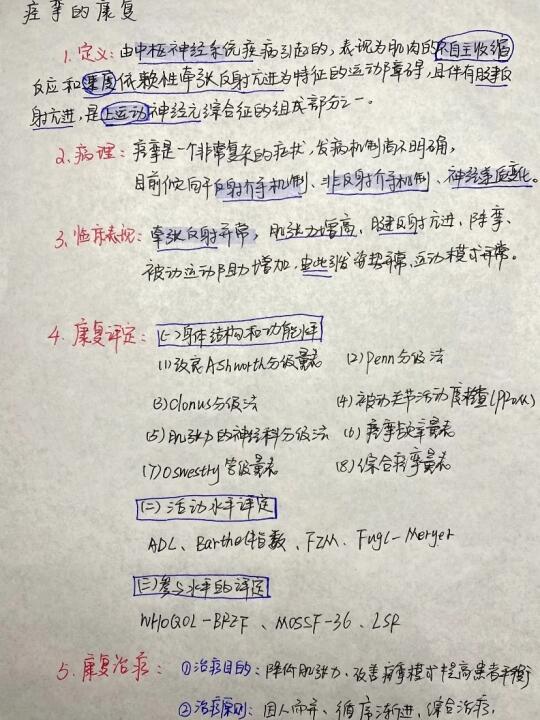 痉挛的康复
1. 定义: 由中枢神经系统疾病引起的, 表现为肌肉的不自主收缩
反应和速度依赖性牵张反射亢进为特征的运动障碍, 且伴有腱反
射亢进, 是上运动神经元综合征的组成部分之一。
2. 病理: 痉挛是一个非常复杂的症状, 发病机制尚不明确,
目前倾向于反射介导机制、非反射介导机制、神经递质变化。
3. 临床表现: 牵张反射异常, 肌张力增高, 腱反射亢进, 阵挛、
被动运动阻力增加, 由此引发姿势异常, 运动模式异常。
4. 康复评定: (一)身体结构和功能水平
(1)改良Ashworth分级量表 (2)Penn分级法
(3)Clonus分级法 (4)被动关节活动度检查(PROM)
(5)肌张力的神经科分级法 (6)痉挛频率量表
(7)Oswestry等级量表 (8)综合痉挛量表
(二)活动水平评定
ADL、Barthel指数、FIM、Fugl-Meryer
(三)参与水平的评定
WHOQOL-BREF、MOSSF-36、LSR
5. 康复治疗: ①治疗目的: 降低肌张力, 改善痉挛模式提高患者平衡
②治疗原则: 因人而异、循序渐进、综合治疗,